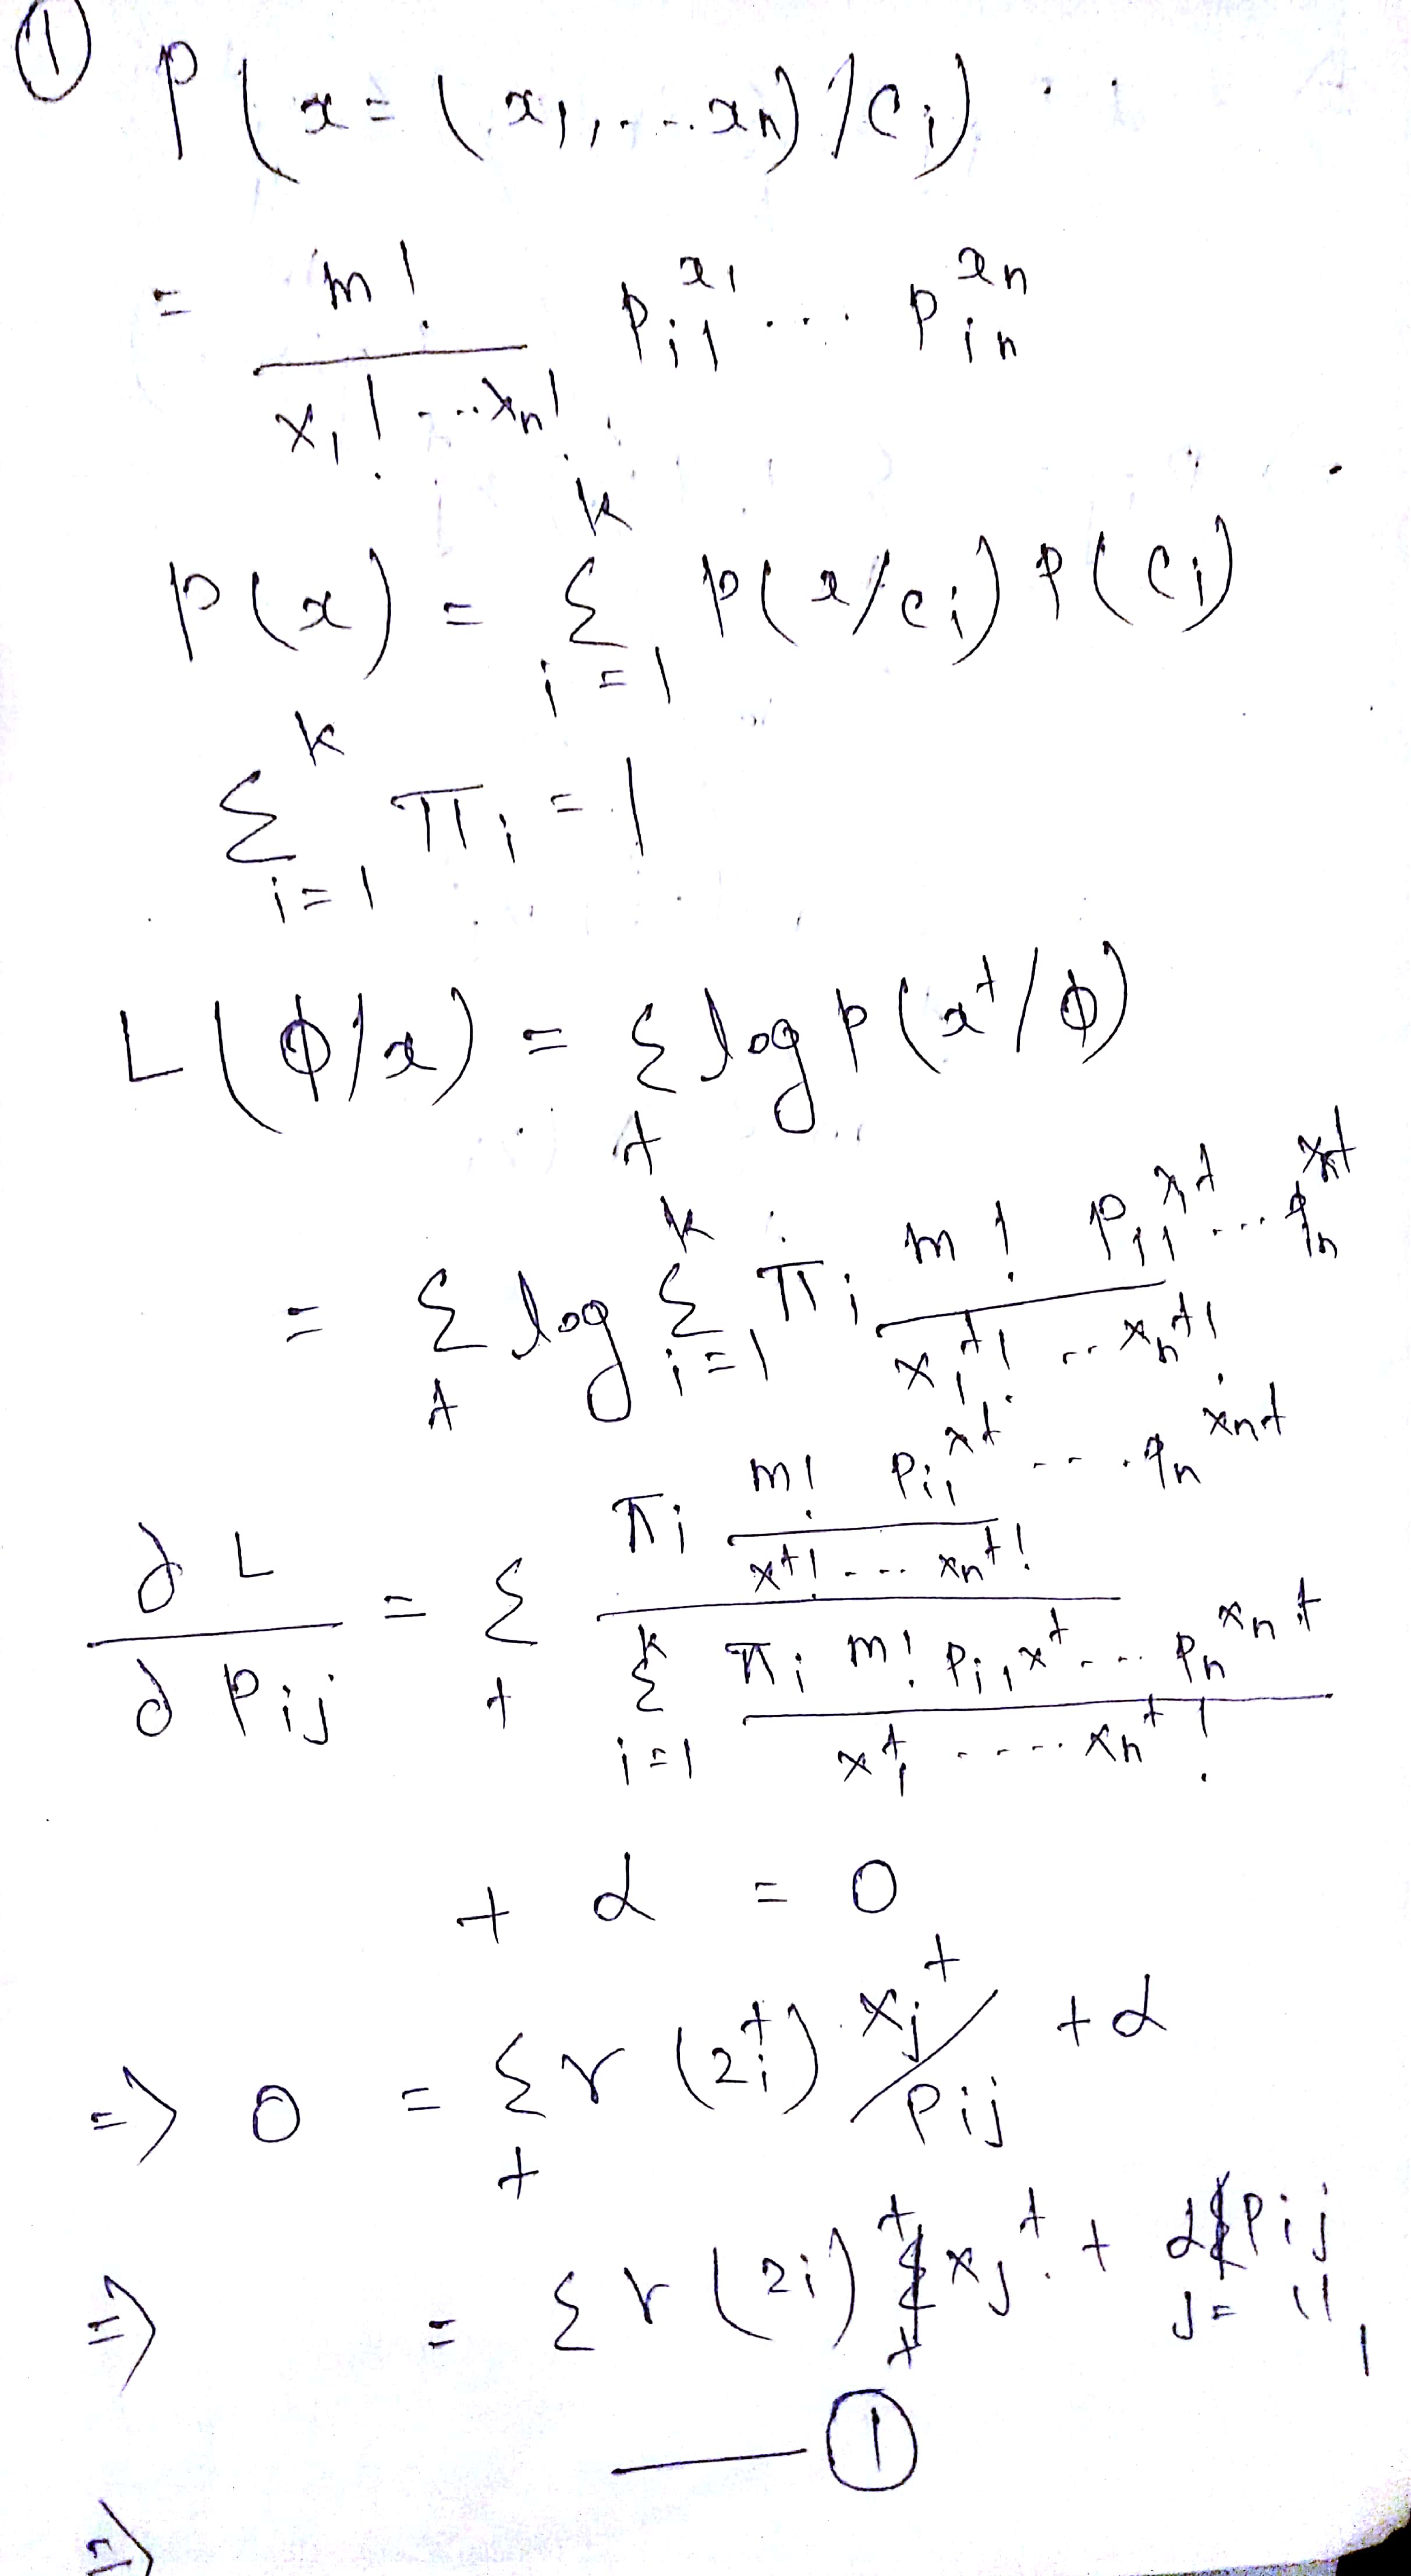 ① P(x = (x₁, ... xₙ) / Cᵢ)
= m! / (x₁! ... xₙ!) Pᵢ₁^x₁ ... Pᵢₙ^xₙ
P(x) = Σ_{i=1}^{k} P(x/cᵢ) P(cᵢ)
Σ_{i=1}^{k} πᵢ = 1
L(ϕ/x) = Σ_t log p(x^t/ϕ)
= Σ_t log Σ_{i=1}^{k} πᵢ m! Pᵢ₁^{x₁t} ... qₙ^{xₙt} / (x₁^t! ... xₙ^t!)
∂L / ∂Pᵢⱼ = Σ_t [πᵢ m! Pᵢ₁^{xt} ... qₙ^{xₙt} / (x^t! ... xₙ^t!)] / [Σ_{i=1}^{k} πᵢ m! Pᵢ₁^{xt} ... Pₙ^{xₙt} / (x₁^t ... xₙ^t!)]
+ α = 0
=> 0 = Σ_t r(zᵢ^t) xⱼ^t / Pᵢⱼ + α
=> = Σ r(zᵢ)^t xⱼ^t + α Pᵢⱼ
j =
— ①
=>